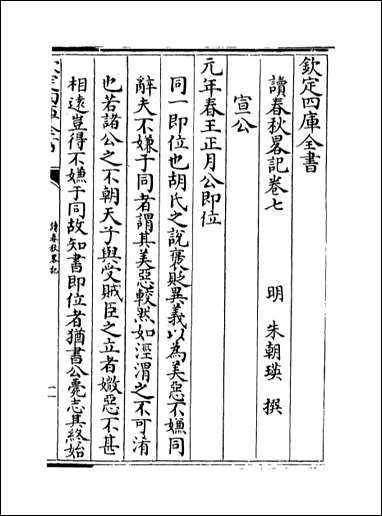 欽定四庫全書
讀春秋畧記卷七
明 朱朝瑛 撰
宣公
元年春王正月公即位
同一即位也胡氏之說褒貶異義以為美惡不嫌同
辭夫不嫌于同者謂其美惡較然如涇渭之不可淆
也若諸公之不朝天子與受賊臣之立者媺惡不甚
相遠豈得不嫌于同故知書即位者猶書公薨志其終始
欽定四庫全書
讀春秋畧記
一